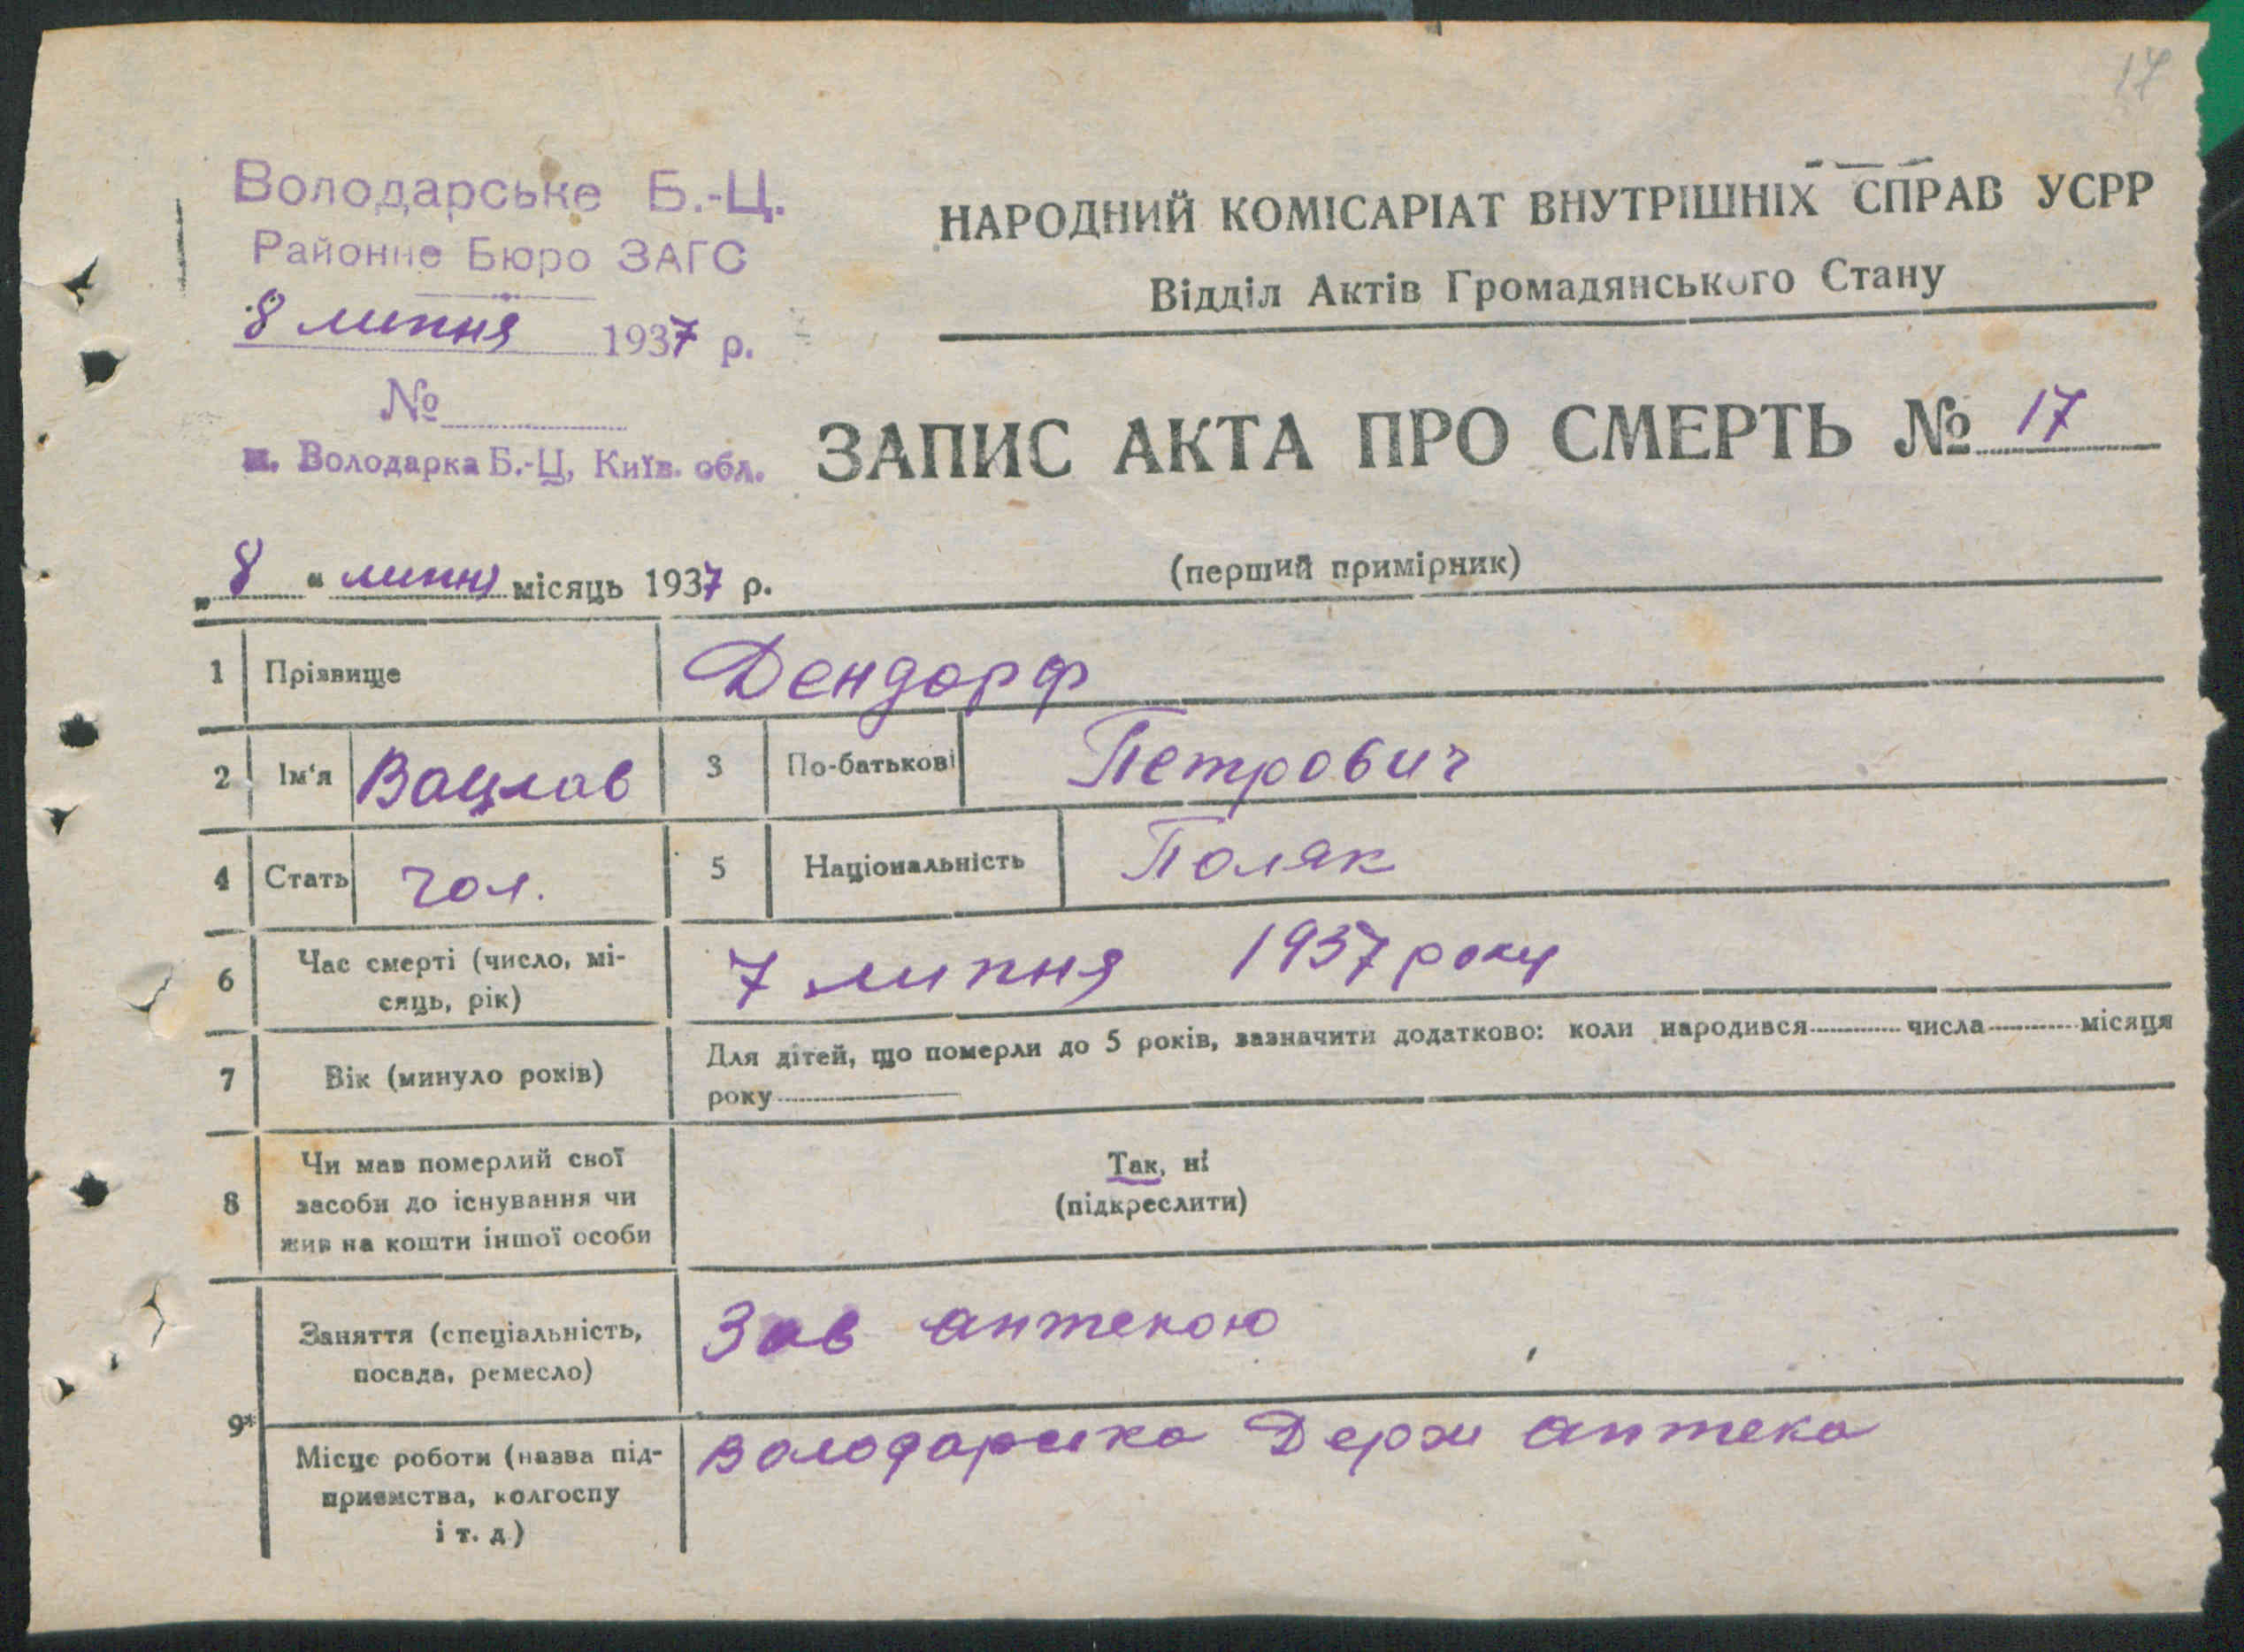 17
Володарське Б.-Ц.
Районне Бюро ЗАГС
8 липня 1937 р.
№
м. Володарка Б.-Ц, Київ. обл.
НАРОДНИЙ КОМІСАРІАТ ВНУТРІШНІХ СПРАВ УСРР
Відділ Актів Громадянського Стану
ЗАПИС АКТА ПРО СМЕРТЬ № 17
(перший примірник)
„8“ липня місяць 1937 р.
1 Прізвище Дендорф
2 Ім‘я Вацлав 3 По-батькові Петрович
4 Стать чол. 5 Національність Поляк
6 Час смерті (число, мі-
сяць, рік) 7 липня 1937 року
7 Вік (минуло років) Для дітей, що померли до 5 років, зазначити додатково: коли народився числа місяця
року
8 Чи мав померлий свої
засоби до існування чи
жив на кошти іншої особи
Так, ні
(підкреслити)
9*
Заняття (спеціальність,
посада, ремесло) Зав аптекою
Місце роботи (назва під-
приємства, колгоспу
і т. д) Володарська Держ аптека